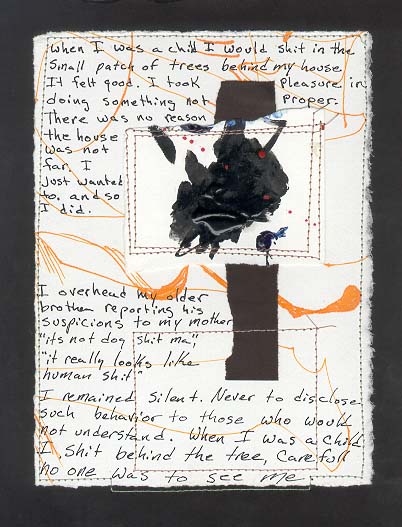 when I was a child I would shit in the
small patch of trees behind my house
It felt good. I took pleasure in
doing something not proper.
There was no reason
the house
was not
far. I
just wanted
to. and so
I did.
I overhead my older
brother reporting his
suspicions to my mother
"its not dog shit ma,"
"it really looks like
human shit"
I remained silent. Never to disclose
such behavior to those who would
not understand. When I was a child
I shit behind the tree, carefull
no one was to see me